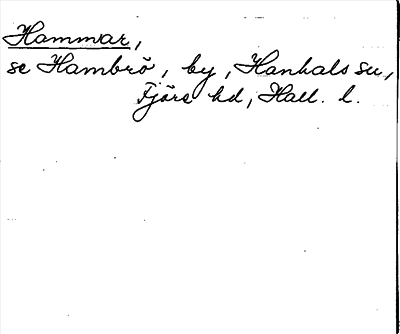 Hammar,
se Hambrö, by, Hanhals sn,
Fjärs hd, Hall. l.